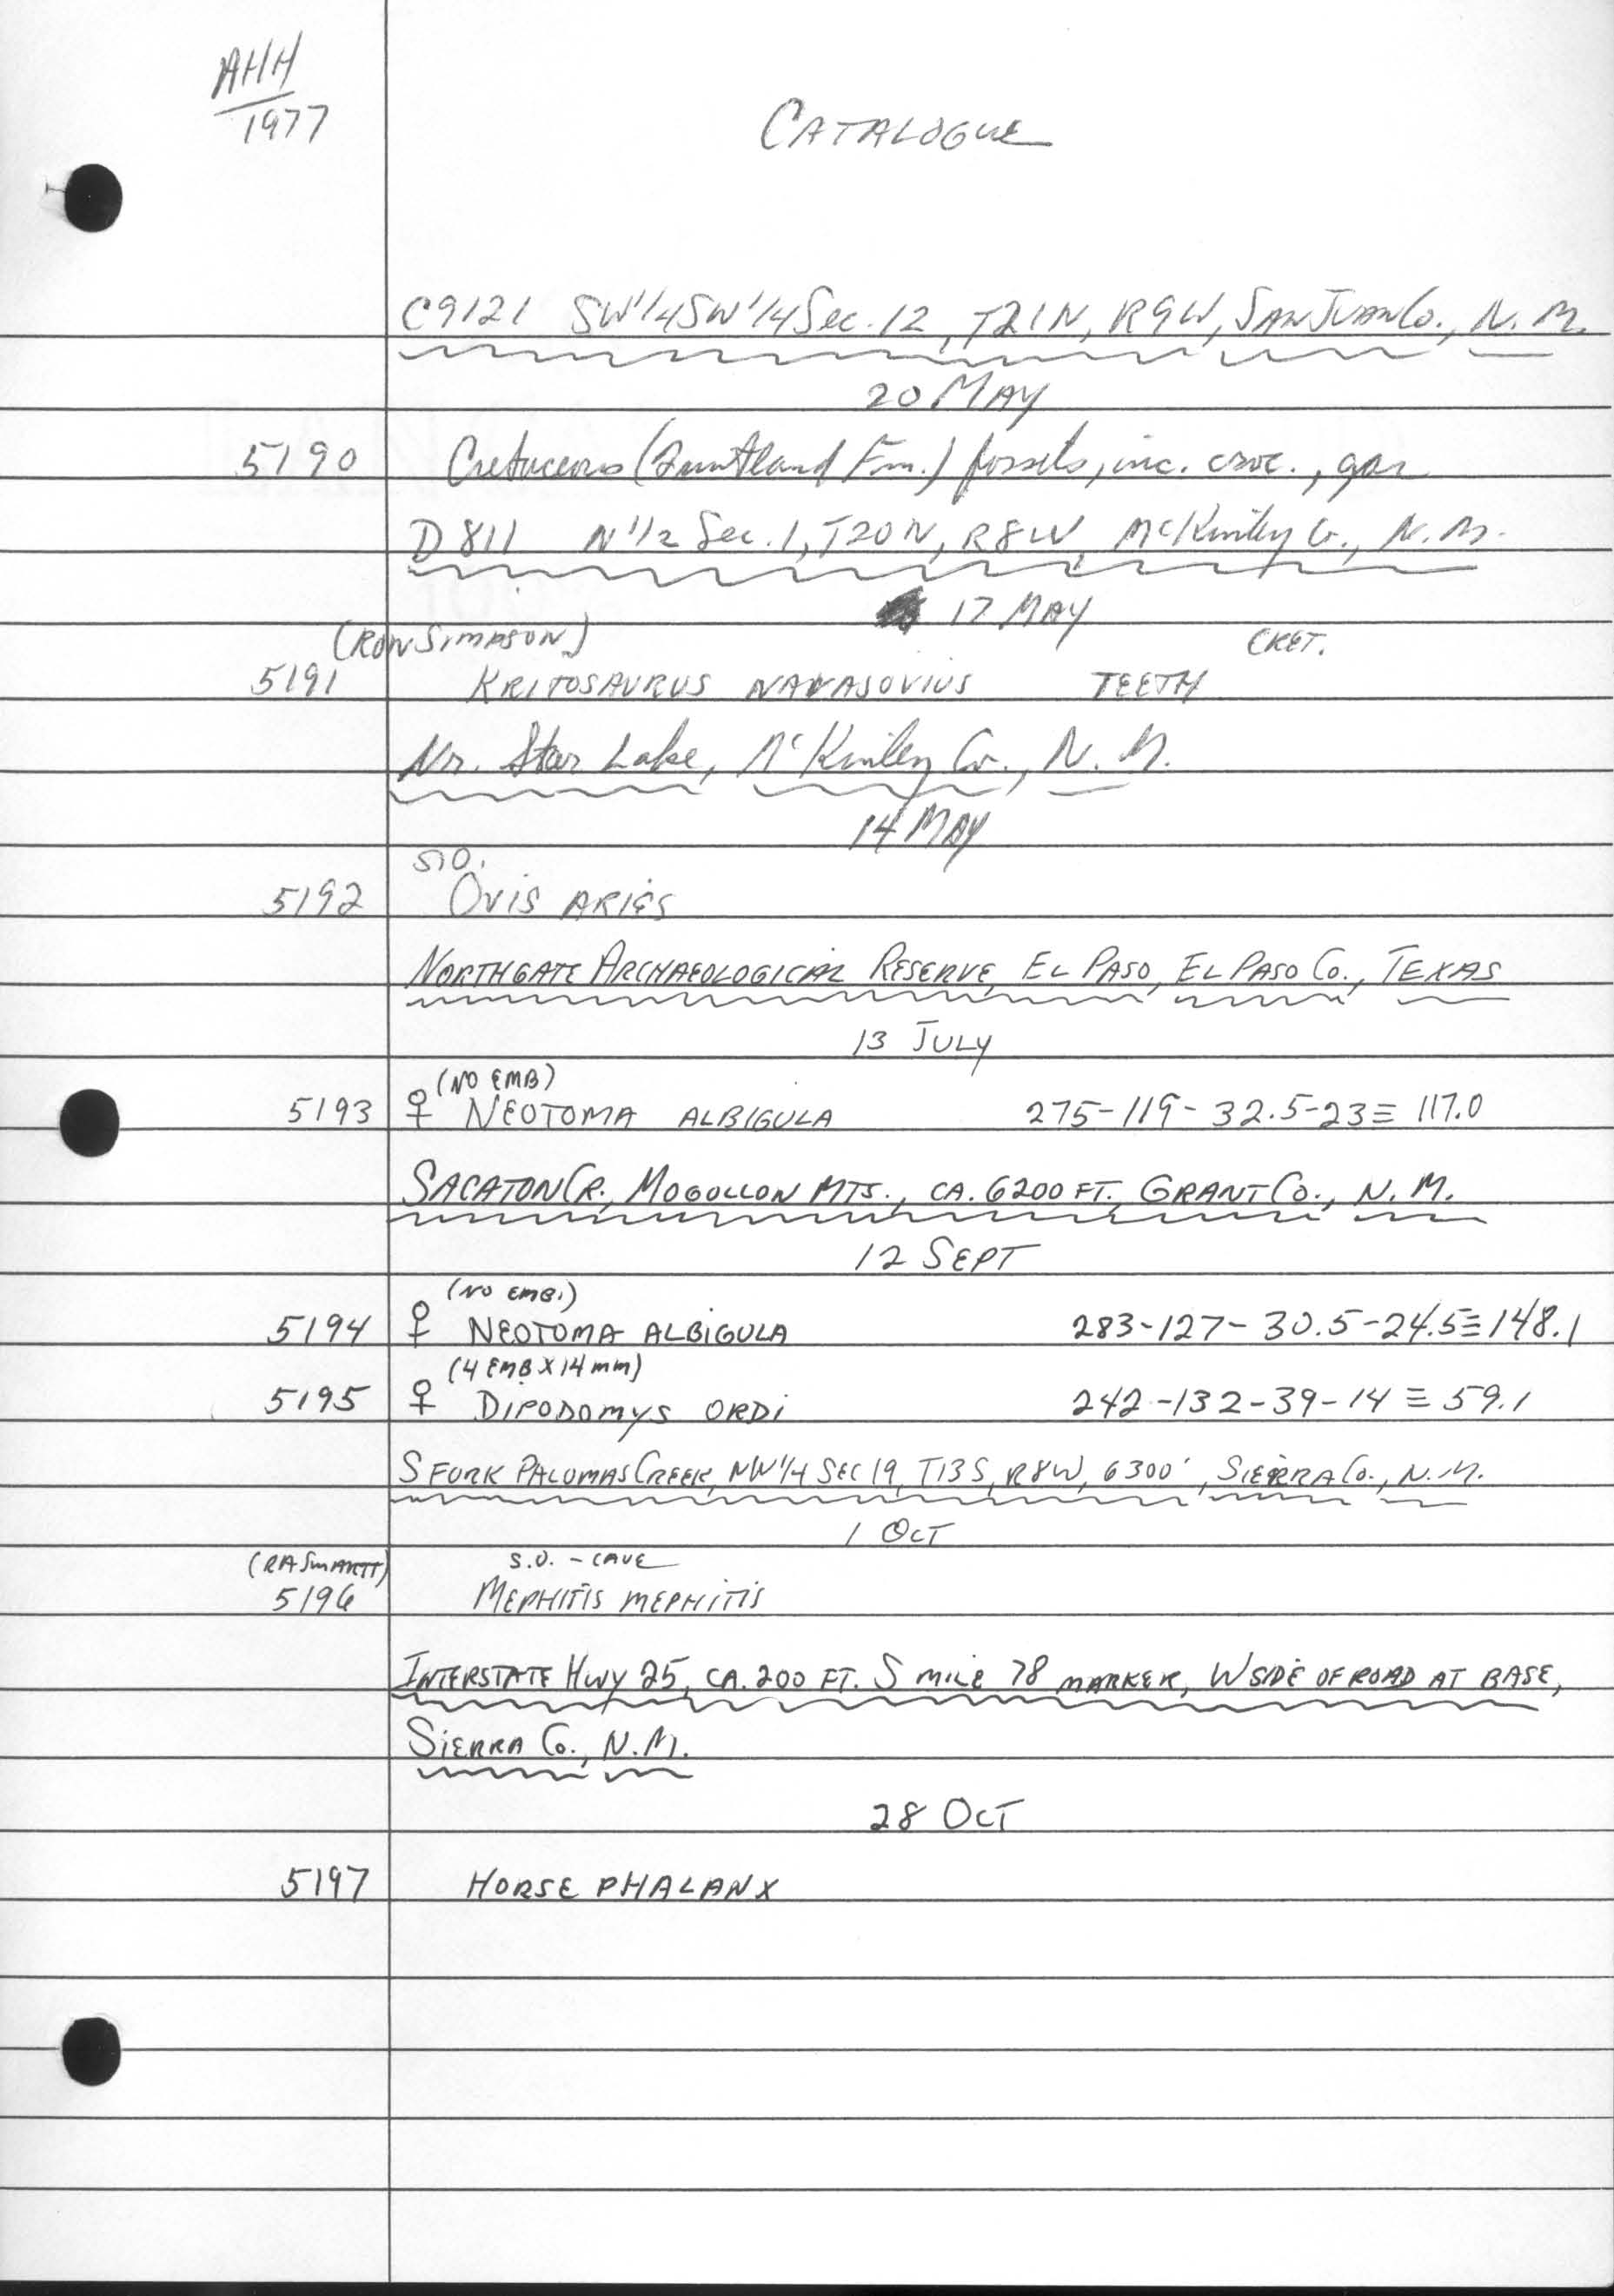 AHH
1977
CATALOGUE
C9121 SW1/4SW1/4Sec. 12, T21N, R9W, SAN JUAN Co., N. M.
20 MAY
5190 Cretaceous (Fruitland Fm.) fossils, inc. croc., gar
D811 N1/2 Sec. 1, T20N, R8W, McKinley Co., N. M.
17 MAY
(RON SIMPSON) CRET.
5191 KRITOSAURUS NAVAJOVIUS TEETH
Nr. Star Lake, McKinley Co., N. M.
14 MAY
S.O.
5192 OVIS ARIES
NORTHGATE ARCHAEOLOGICAL RESERVE, EL PASO, EL PASO Co., TEXAS
13 JULY
(NO EMB)
5193 ♀ NEOTOMA ALBIGULA 275-119-32.5-23≡117.0
SACATON CR., MOGOLLON MTS., CA. 6200 FT., GRANT Co., N. M.
12 SEPT
(NO EMB.)
5194 ♀ NEOTOMA ALBIGULA 283-127-30.5-24.5≡148.1
(4 EMB X 14 mm)
5195 ♀ DIPODOMYS ORDI 242-132-39-14≡59.1
S FORK PALOMAS CREEK, NW1/4 SEC 19, T13S, R8W, 6300', SIERRA Co., N. M.
1 OCT
(RA SMARTT) S.O. - CAVE
5196 MEPHITIS MEPHITIS
INTERSTATE HWY 25, CA. 200 FT. S MILE 78 MARKER, W SIDE OF ROAD AT BASE,
SIERRA Co., N.M.
28 OCT
5197 HORSE PHALANX